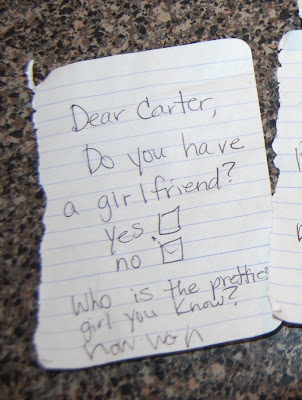 Dear Carter,
Do you have
a girlfriend?
yes
no
Who is the pretties
girl you know?